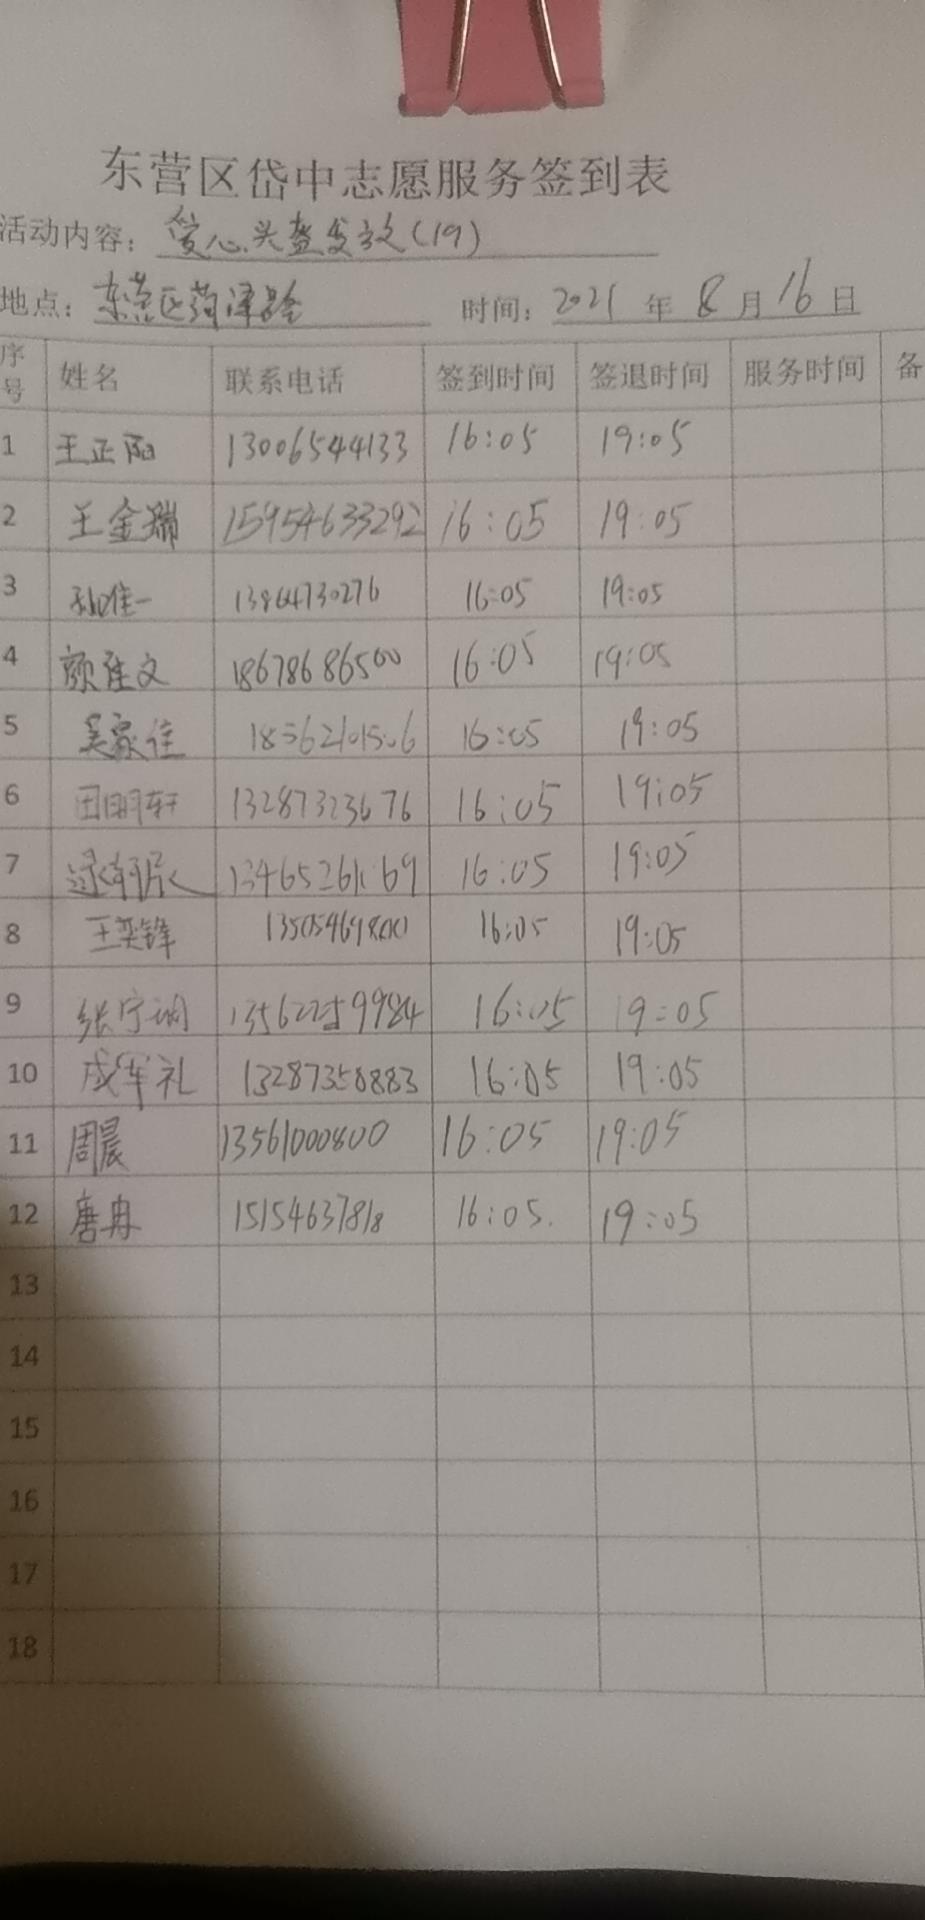 东营区岱中志愿服务签到表
活动内容：爱心头盔发放(19)
地点：东营区菏泽路 时间：2021 年 8 月 16 日
序号 姓名 联系电话 签到时间 签退时间 服务时间 备
1 王正阳 13006544133 16:05 19:05
2 王金瑞 15954633292 16:05 19:05
3 16:05 19:05
4 颜佳文 18678686500 16:05 19:05
5 吴家佳 18562101506 16:05 19:05
6 田明轩 13287323676 16:05 19:05
7 16:05 19:05
8 王奕锋 16:05 19:05
9 16:05 19:05
10 成军礼 13287358883 16:05 19:05
11 周晨 13561000800 16:05 19:05
12 唐冉 15154637818 16:05. 19:05
13
14
15
16
17
18